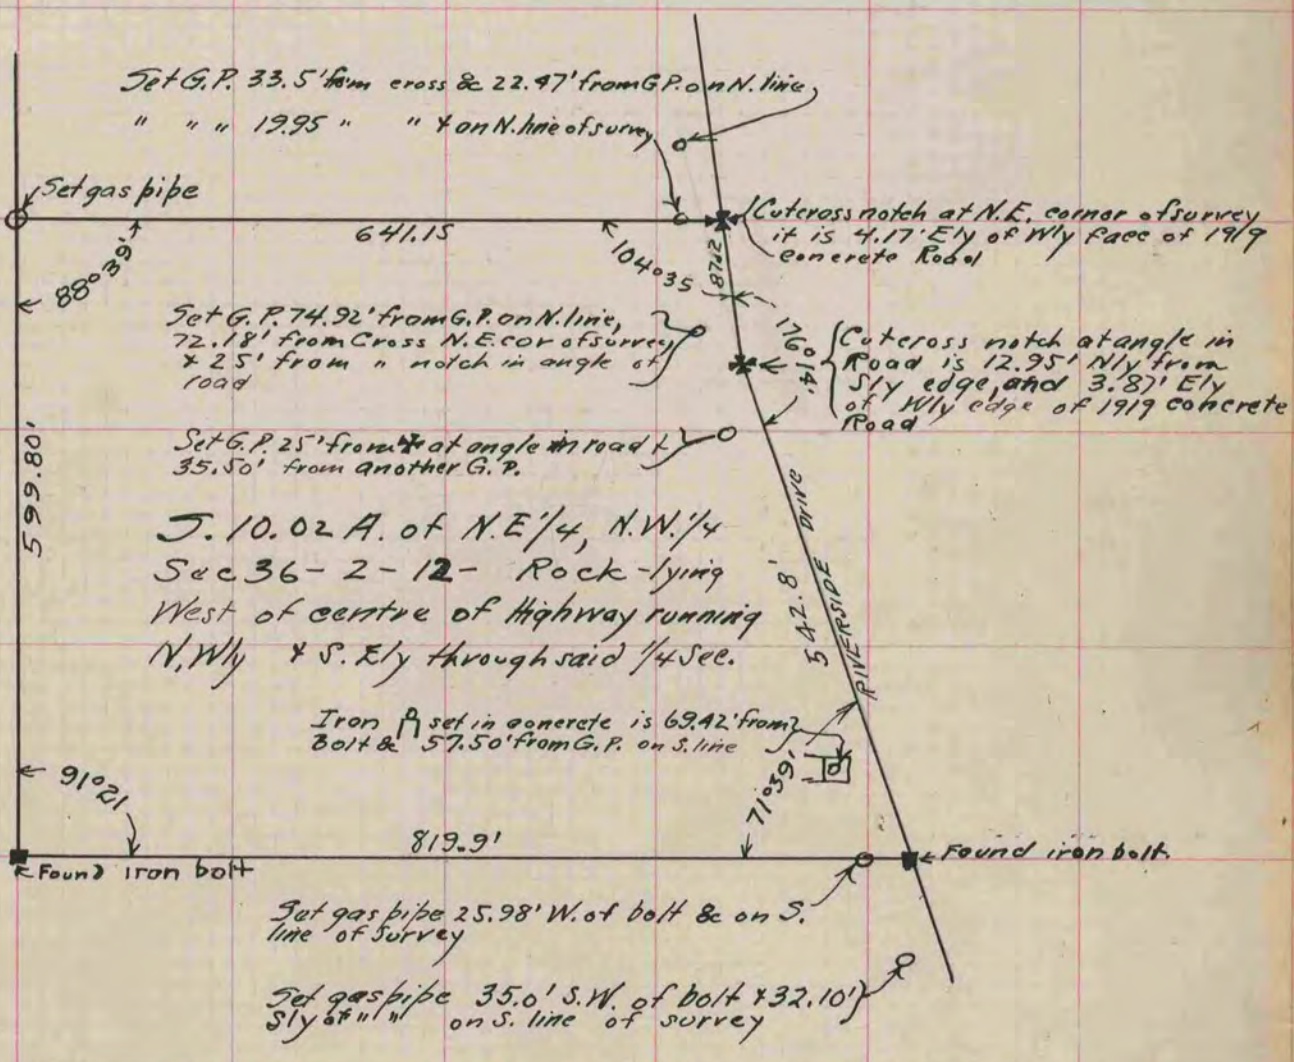 Set G.P. 33.5' from cross & 22.47' from G.P. on N. line
" " " 19.95 " " & on N. line of survey
Set gas pipe
641.15
Cut cross notch at N.E. corner of survey
it is 4.17' Ely of Wly face of 1919
concrete Road
88°39'
104°35
87.2
176°14'
Set G.P. 74.92' from G.P. on N. line,
72.18' from Cross N.E. cor of survey
& 25' from " notch in angle of
road
Cut cross notch at angle in
Road is 12.95' Nly from
Sly edge, and 3.87' Ely
of Wly edge of 1919 concrete
Road
Set G.P. 25' from at angle in road &
35.50' from another G.P.
599.80'
S. 10.02 A. of N.E 1/4, N.W. 1/4
Sec 36 - 2 - 12 - Rock - lying
West of centre of Highway running
N,Wly & S. Ely through said 1/4 Sec.
542.8'
RIVERSIDE Drive
Iron set in concrete is 69.42' from
Bolt & 57.50' from G.P. on S. line
91°21
71°39'
819.9'
Found iron bolt
Found iron bolt.
Set gas pipe 25.98' W. of bolt & on S.
line of Survey
Set gas pipe 35.0' S.W. of bolt & 32.10'
Sly of " " on S. line of survey